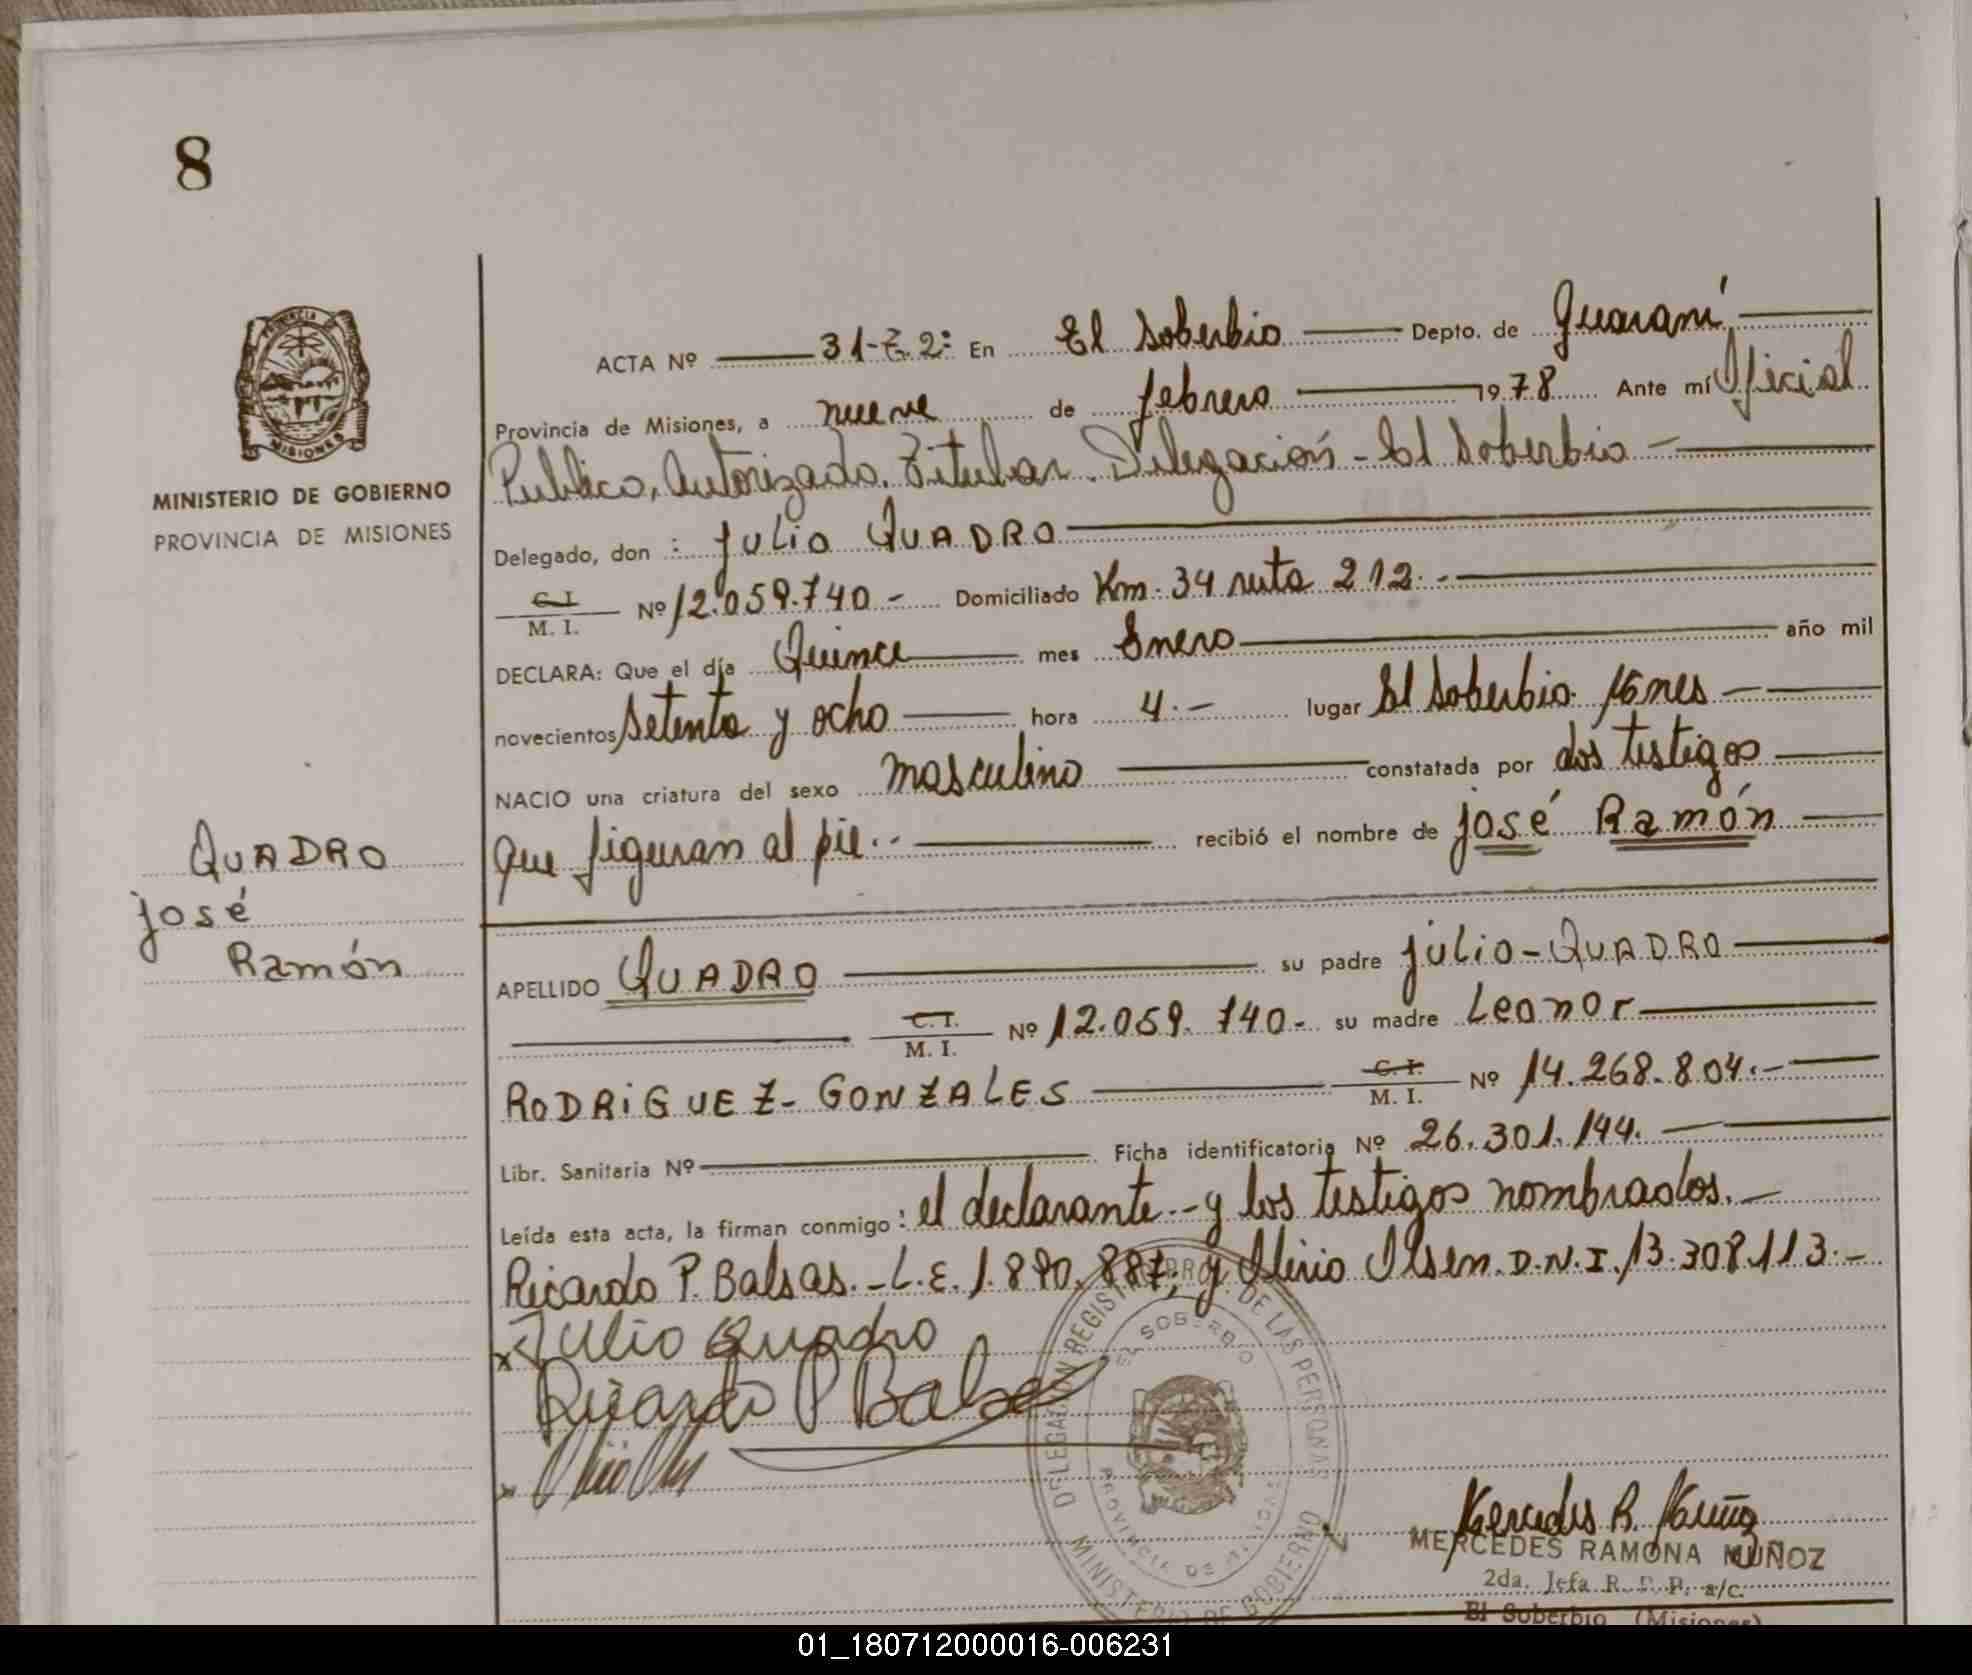 8
ACTA Nº 31-T.2º En El Soberbio Depto. de Guaraní
Provincia de Misiones, a nueve de febrero 1978 Ante mí Oficial
Publico, Autorizado. Titular. Delegación - El Soberbio -
MINISTERIO DE GOBIERNO
PROVINCIA DE MISIONES
Delegado, don : Julio QUADRO
C. I.
M. I. Nº 12.059.740 - Domiciliado Km. 34 ruta 212. -
DECLARA: Que el día Quince mes Enero año mil
novecientos setenta y ocho hora 4. - lugar El Soberbio. Mnes -
NACIO una criatura del sexo masculino constatada por dos testigos
que figuran al pie. - recibió el nombre de José Ramón
QUADRO
José
Ramón
APELLIDO QUADRO su padre Julio - QUADRO
C. I.
M. I. Nº 12.059.740 - su madre Leonor
RODRiGUEZ - GONZALES C. I.
M. I. Nº 14.268.804. -
Libr. Sanitaria Nº Ficha identificatoria Nº 26.301.144. -
Leída esta acta, la firman conmigo : el declarante - y los testigos nombrados. -
Ricardo P. Balsas. - L.E. 1.890.887; y Olirio Olsen. D.N.I. 13.308.113. -
x Julio Quadro
Ricardo P Balsas
DELEGACIÓN REGISTRO PROV. DE LAS PERSONAS
EL SOBERBIO
PROVINCIA DE MISIONES
MINISTERIO DE GOBIERNO
Mercedes R. Muñoz
MERCEDES RAMONA MUÑOZ
2da. Jefa R. P. P. a/c.
El Soberbio (Misiones)
01_180712000016-006231